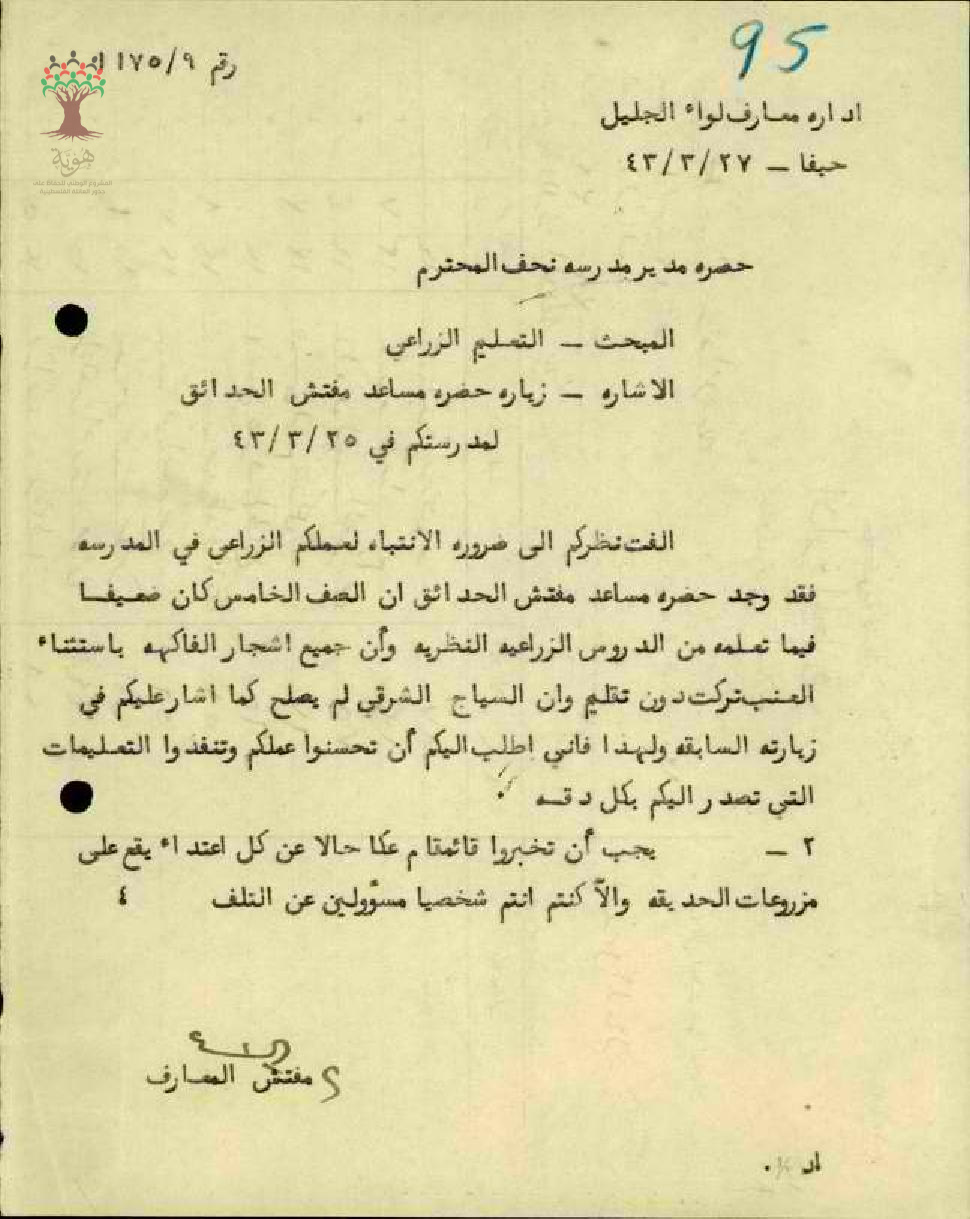 95
رقم ١٧٥/٩
اداره معارف لواء الجليل
حيفا - ٤٣/٣/٢٧
هوية
المشروع الوطني للحفاظ على
جذور العائلة الفلسطينية
حضره مدير مدرسه نحف المحترم
المبحث - التعليم الزراعي
الاشاره - زياره حضره مساعد مفتش الحدائق
لمدرستكم في ٤٣/٣/٢٥
الفت نظركم الى ضروره الانتباه لعملكم الزراعي في المدرسه
فقد وجد حضره مساعد مفتش الحدائق ان الصف الخامس كان ضعيفا
فيما تعلمه من الدروس الزراعيه النظريه وأن جميع اشجار الفاكهه باستثناء
العنب تركت دون تقليم وان السياج الشرقي لم يصلح كما اشار عليكم في
زيارته السابقه ولهذا فاني اطلب اليكم أن تحسنوا عملكم وتنفذوا التعليمات
التي تصدر اليكم بكل دقه .
٢ - يجب أن تخبروا قائمقام عكا حالا عن كل اعتداء يقع على
مزروعات الحديقه والاّ كنتم انتم شخصيا مسؤولين عن التلف ٤
مفتش المعارف
اد